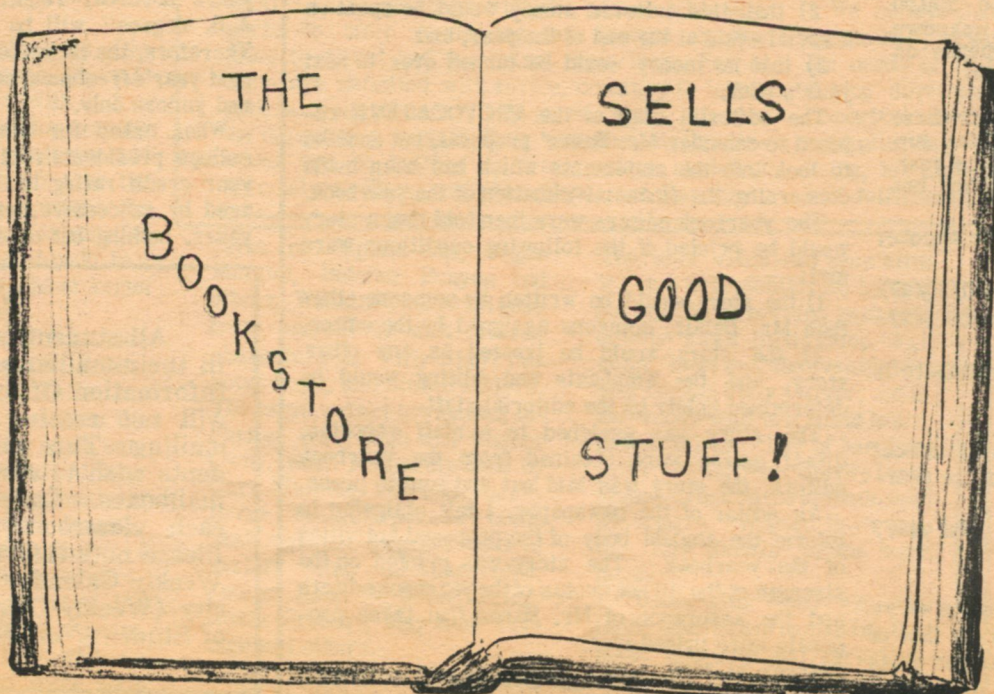 THE
BOOKSTORE
SELLS
GOOD
STUFF!